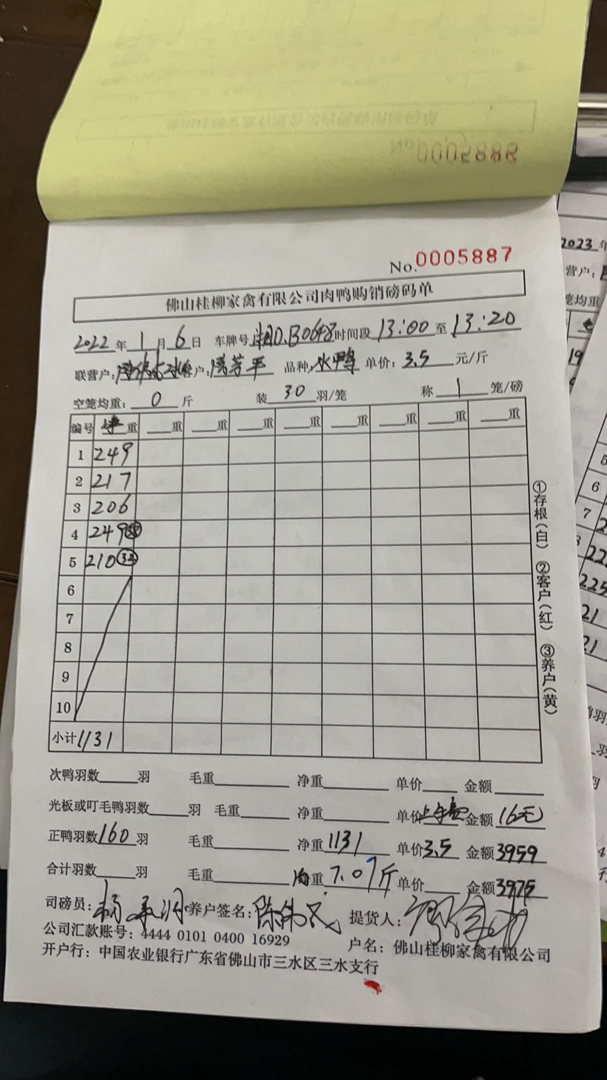 No 0005886
No. 0005887
佛山桂柳家禽有限公司肉鸭购销磅码单
2022 年 1 月 6 日 车牌号 时间段 13:00 至 13:20
联营户: 客户: 品种: 水鸭 单价: 3.5 元/斤
空笼均重: 0 斤 装 30 羽/笼 称 1 笼/磅
编号 净重 重 重 重 重 重 重 重 重
1 249
2 217
3 206
4 249
5 210 32
6
7
8
9
10
小计 1131
①存根(白) ②客户(红) ③养户(黄)
次鸭羽数 羽 毛重 净重 单价 金额
光板或叮毛鸭羽数 羽 毛重 单价 上车费 金额 16元
正鸭羽数 160 羽 毛重 净重 1131 单价 3.5 金额 3959
合计羽数 羽 毛重 均重 7.07斤 单价 金额 3975
司磅员: 养户签名: 提货人:
公司汇款账号: 4444 0101 0400 16929 户名: 佛山桂柳家禽有限公司
开户行: 中国农业银行广东省佛山市三水区三水支行
2023 年